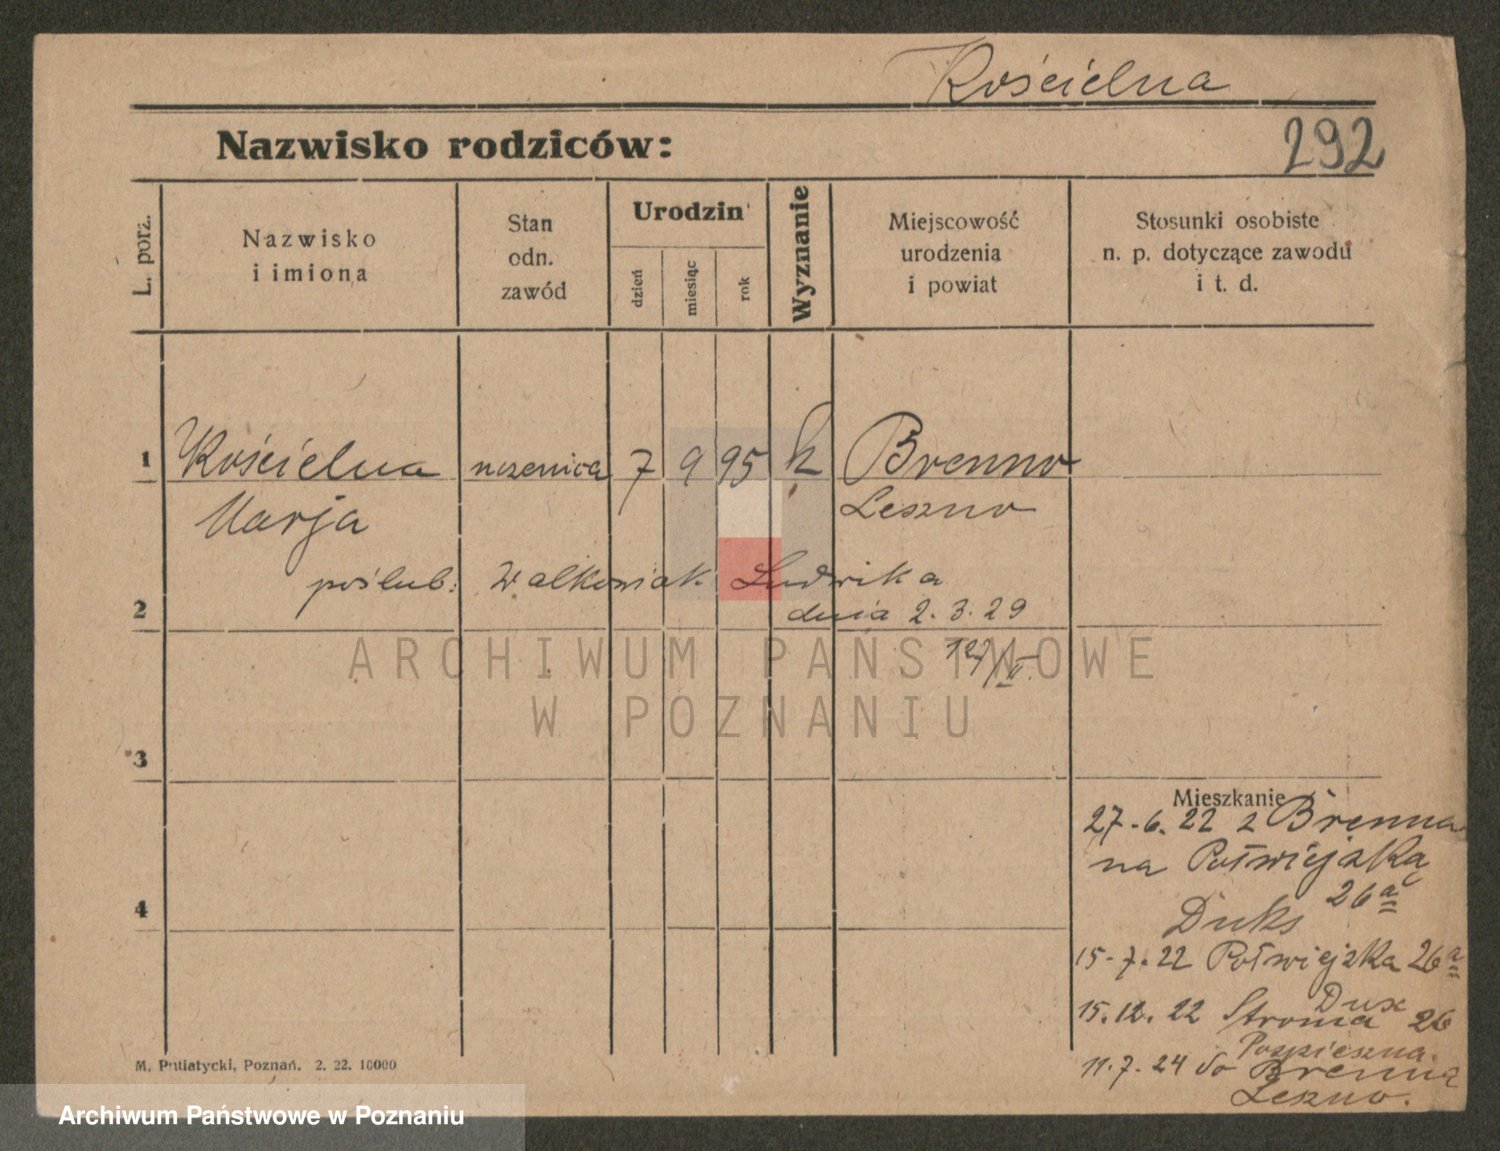 Kościelna
Nazwisko rodziców:
292
L. porz.
Nazwisko
i imiona
Stan
odn.
zawód
Urodzin
dzień
miesiąc
rok
Wyznanie
Miejscowość
urodzenia
i powiat
Stosunki osobiste
n. p. dotyczące zawodu
i t. d.
1
Kościelna
uczenica
7
9
95
k
Brenno
Marja
Leszno
poślub: Walkowiak Ludwika
2
dnia 2.3.29
127/II.
ARCHIWUM PAŃSTWOWE
W POZNANIU
3
Mieszkanie
27.6.22 z Brenna
na Półwiejską
26a
4
Duks
15.7.22 Półwiejska 26a
Dux
15.12.22 Stroma 26
Pospieszna.
11.7.24 do Brenna
Leszno.
M. Putiatycki, Poznań. 2. 22. 10000
Archiwum Państwowe w Poznaniu